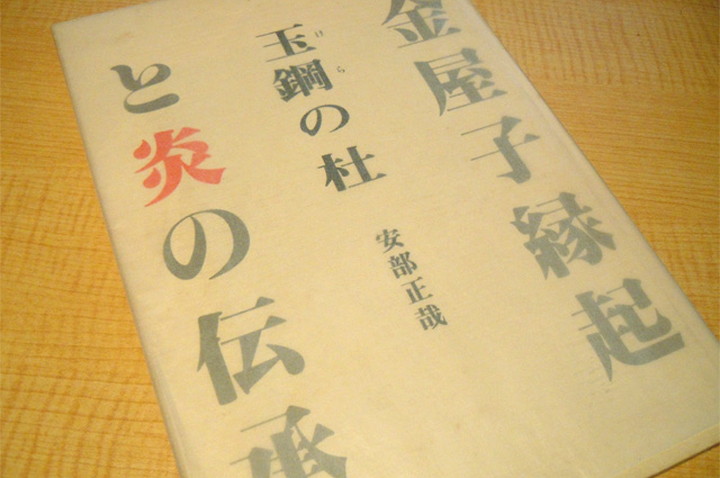 金屋子縁起
と炎の伝承
玉鋼の杜
けら
安部正哉